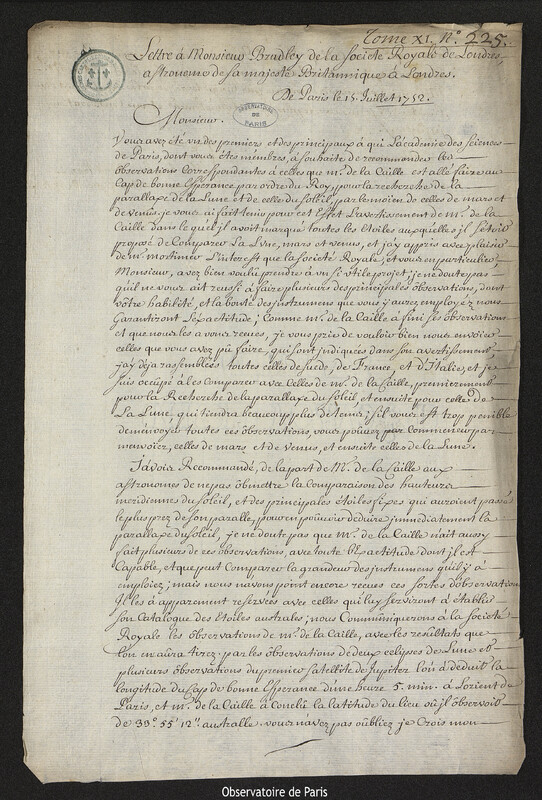 Tome XI. N.º 225.
Lettre à Monsieur Bradley de la Societe Royale de Londres,
astronome de sa majesté Britannique à Londres.
De Paris le 15. Juillet 1752.
OBSERVATOIRE
DE
PARIS
Monsieur.
Vous avez été un des premiers et des principaux à qui L'academie des sciences
de Paris, dont vous étes membres, à souhaité de recommander les
observations Correspondantes à celles que mr. de la Caille est allé faire au
Cap de bonne Esperance par ordre du Roy, pour la recherche de la
parallaxe de la Lune et de celle du Soleil, par le moien de celles de mars et
de venus. je vous ai fait tenir pour cet Effet L'avertissement de mr. de la
Caille dans le quel il avoit marqué toutes les étoiles auxquelles il s'étoit
proposé de Comparer La Lune, mars et venus, et j'ay appris avec plaisir
de mr. mortimer L'interest que la societé Royale, et vous en particulier
Monsieur, avez bien voulu prendre à un si utile projet; je ne doute pas
qu'il ne vous ait reussi à faire plusieurs des principales observations, dont
vôtre habilité, et la bonté des instrumens que vous y aurez employez nous
Garantiront L'exactitude; Comme mr. de la Caille à fini ses observations
et que nous les avons recues, je vous prie de vouloir bien nous envoier
celles que vous avez pû faire, qui sont indiquées dans son avertissement
j'ay déja rassemblées toutes celles de suede, de France, et d'Italie, et je
suis occupé à les Comparer avec Celles de mr. de la Caille, premierement
pour la Recherche de la parallaxe du Soleil, et ensuite pour celle de
La Lune, qui tiendra beaucoup plus de tems; s'il vous est trop penible
de m'envoyer toutes ces observations, vous pouvez par Commencer par
m'envoier, celles de mars et de venus, et ensuite celles de la Lune.
J'avois Recommandé, de la part de Mr. de la Caille aux
astronomes de ne pas obmettre la Comparaison des hauteurs
meridiennes du Soleil, et des principales étoiles fixes qui auroient passé
le plus prez de son paralle, pour en pouvoir deduire immediatement la
parallaxe du Soleil, je ne doute pas que mr. de la Caille n'ait aussy
fait plusieurs de ces observations, avec toute l'Exactitude dont il est
Capable, et que peut Comparer la grandeur des instrumens qu'il y à
emploiez; mais nous n'avons point encore recues ces sortes d'observations
Il les à apparement reservées avec celles qui luy serviront à établir
son Catalogue des étoiles australes; nous Communiquerons à la Societé
Royale les observations de mr. de la Caille, avec les resultats que
l'on en aura tirez. par les observations de deux eclipses de Lune et
plusieurs observations du premier satellite de Jupiter l'on à deduit la
longitude du Cap de bonne Esperance d'une heure 5. min. à Lorient de
Paris, et mr. de la Caille à Conclu la latitude du lieu où il observoit
de 33º 55' 12". australle. vous n'avez pas oubliez je Crois mon
Observatoire de Paris